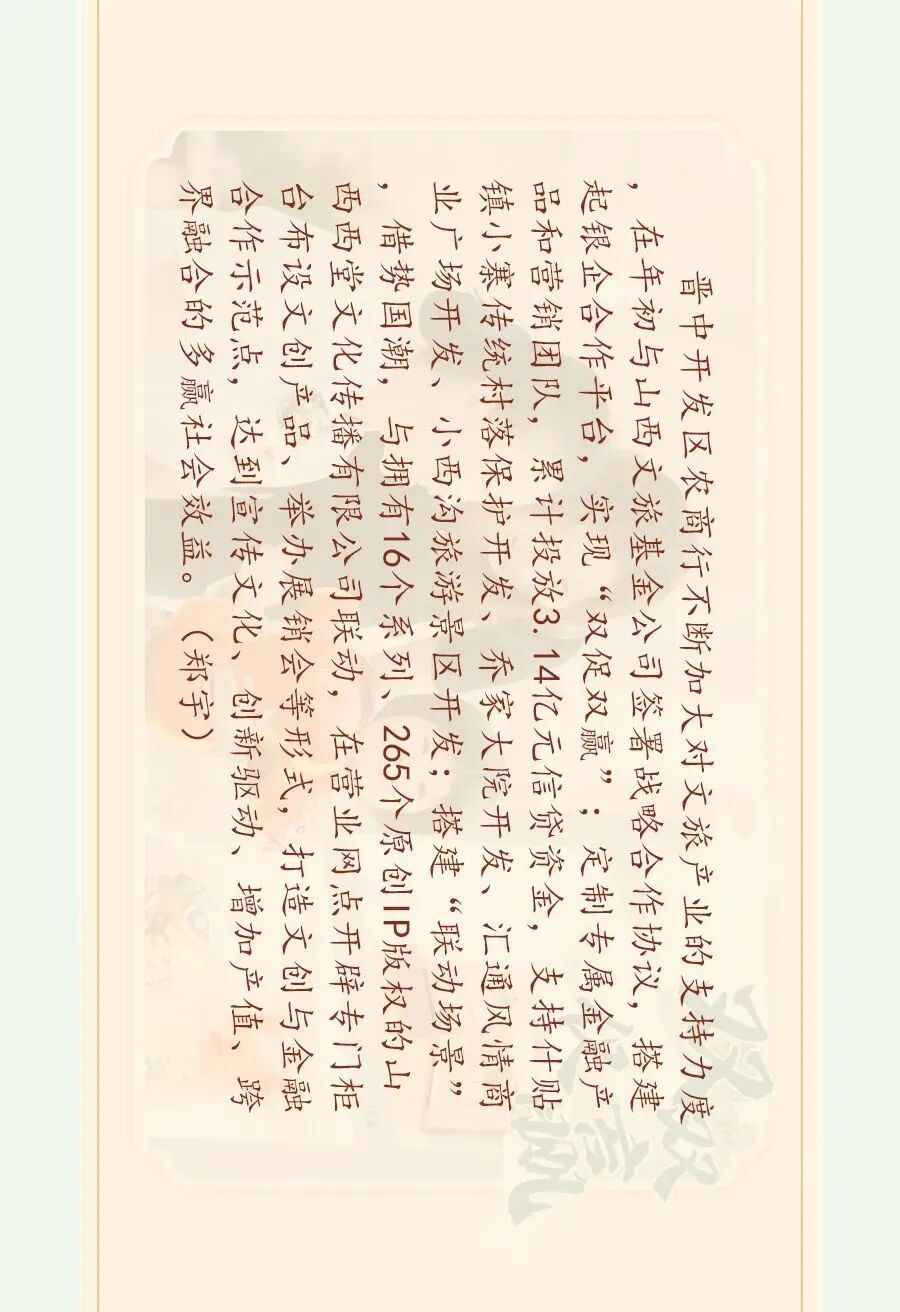 晋中开发区农商行不断加大对文旅产业的支持力度
，在年初与山西文旅基金公司签署战略合作协议，搭建
起银企合作平台，实现“双促双赢”；定制专属金融产
品和营销团队，累计投放3.14亿元信贷资金，支持什贴
镇小寨传统村落保护开发、乔家大院开发、汇通风情商
业广场开发、小西沟旅游景区开发；搭建“联动场景”
，借势国潮，与拥有16个系列、265个原创IP版权的山
西西堂文化传播有限公司联动，在营业网点开辟专门柜
台布设文创产品、举办展销会等形式，打造文创与金融
合作示范点，达到宣传文化、创新驱动、增加产值、跨
界融合的多赢社会效益。（郑宇）